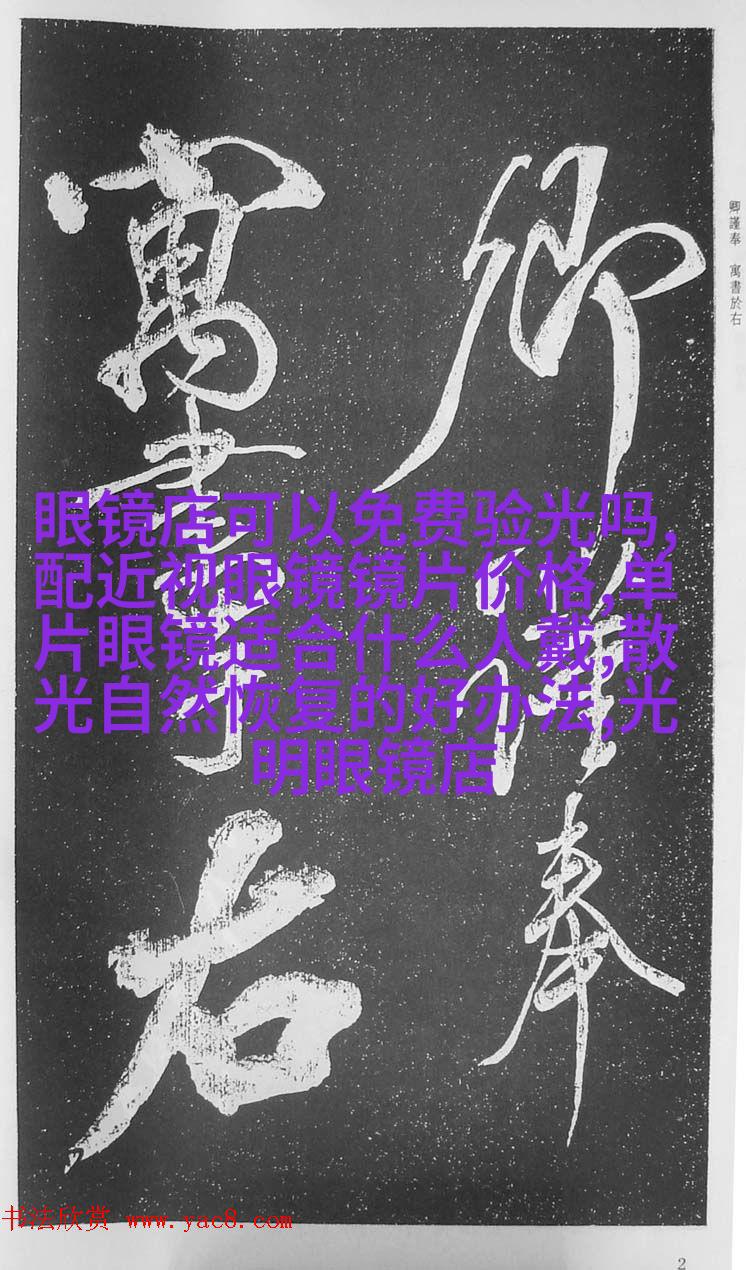 卿謹奉
寓書於右
卿謹奉　寓書於右
眼镜店可以免费验光吗,
配近视眼镜镜片价格,单
片眼镜适合什么人戴,散
光自然恢复的好办法,光
明眼镜店
书法欣赏 www.yac8.com
2